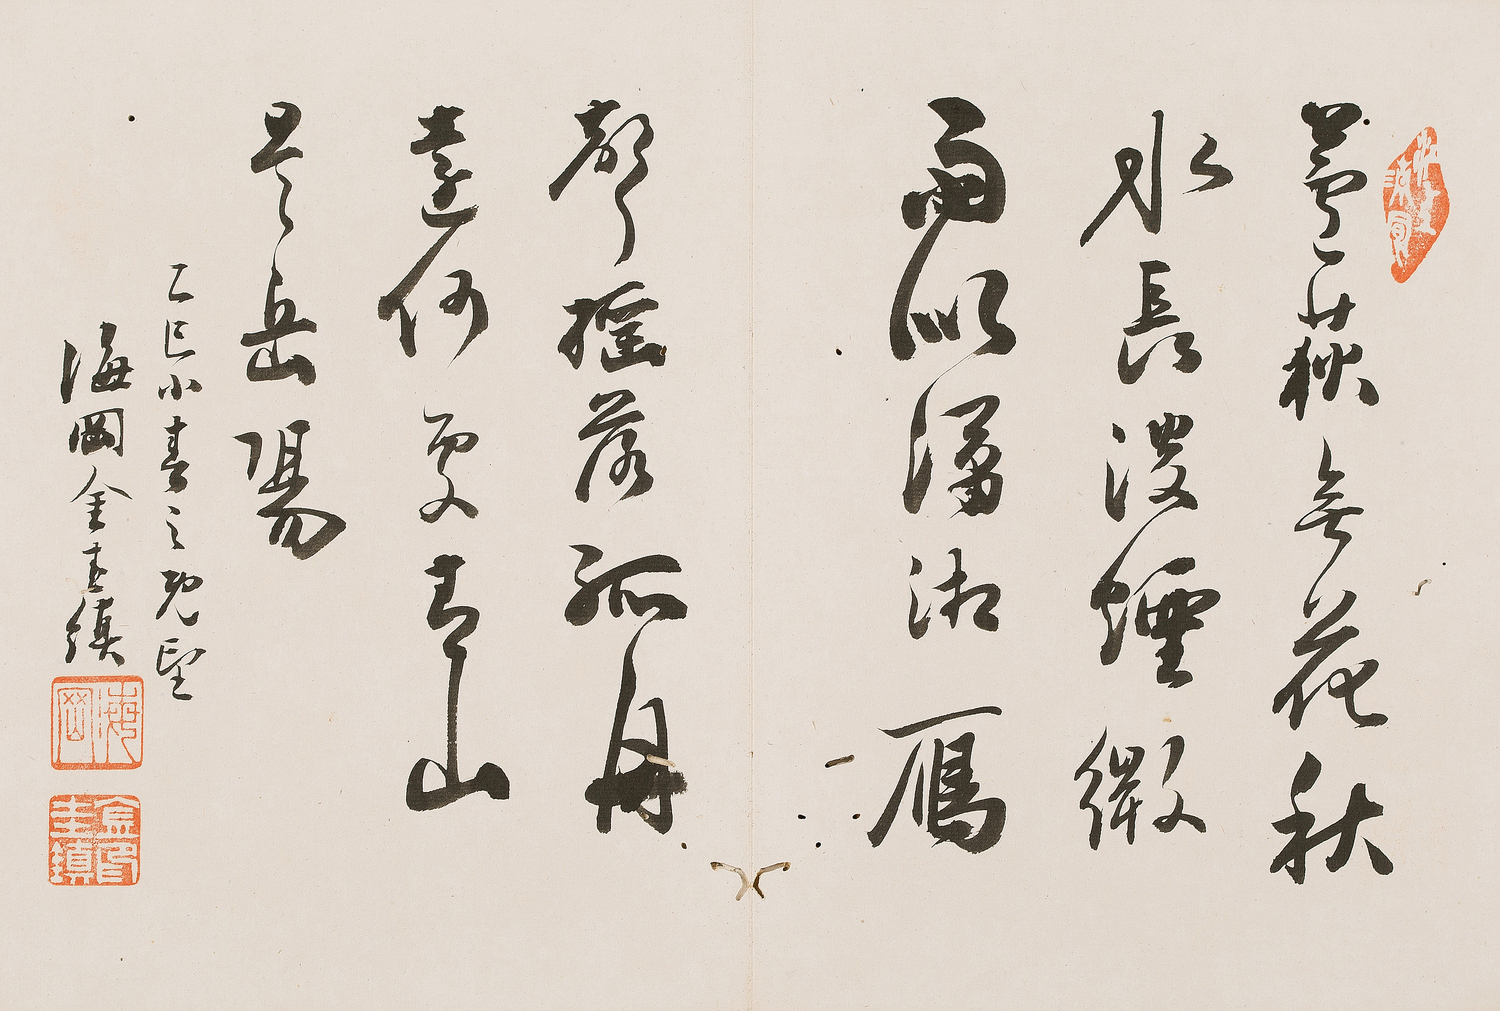 蘆荻無花秋
水長淡煙微
雨似瀟湘鴈
聲搖落孤舟
遠何處青山
是岳陽
乙巳小春之既望
海岡金圭鎮
海岡
金圭鎮印